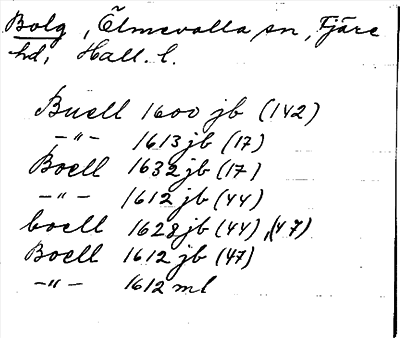 Bolg, Ölmevalla sn, Fjäre
hd, Hall. l.
Buell 1600 jb (142)
–"– 1613 jb (17)
Boell 1632 jb (17)
–"– 1612 jb (44)
boell 1628 jb (44), (47)
Boell 1612 jb (47)
–"– 1612 ml